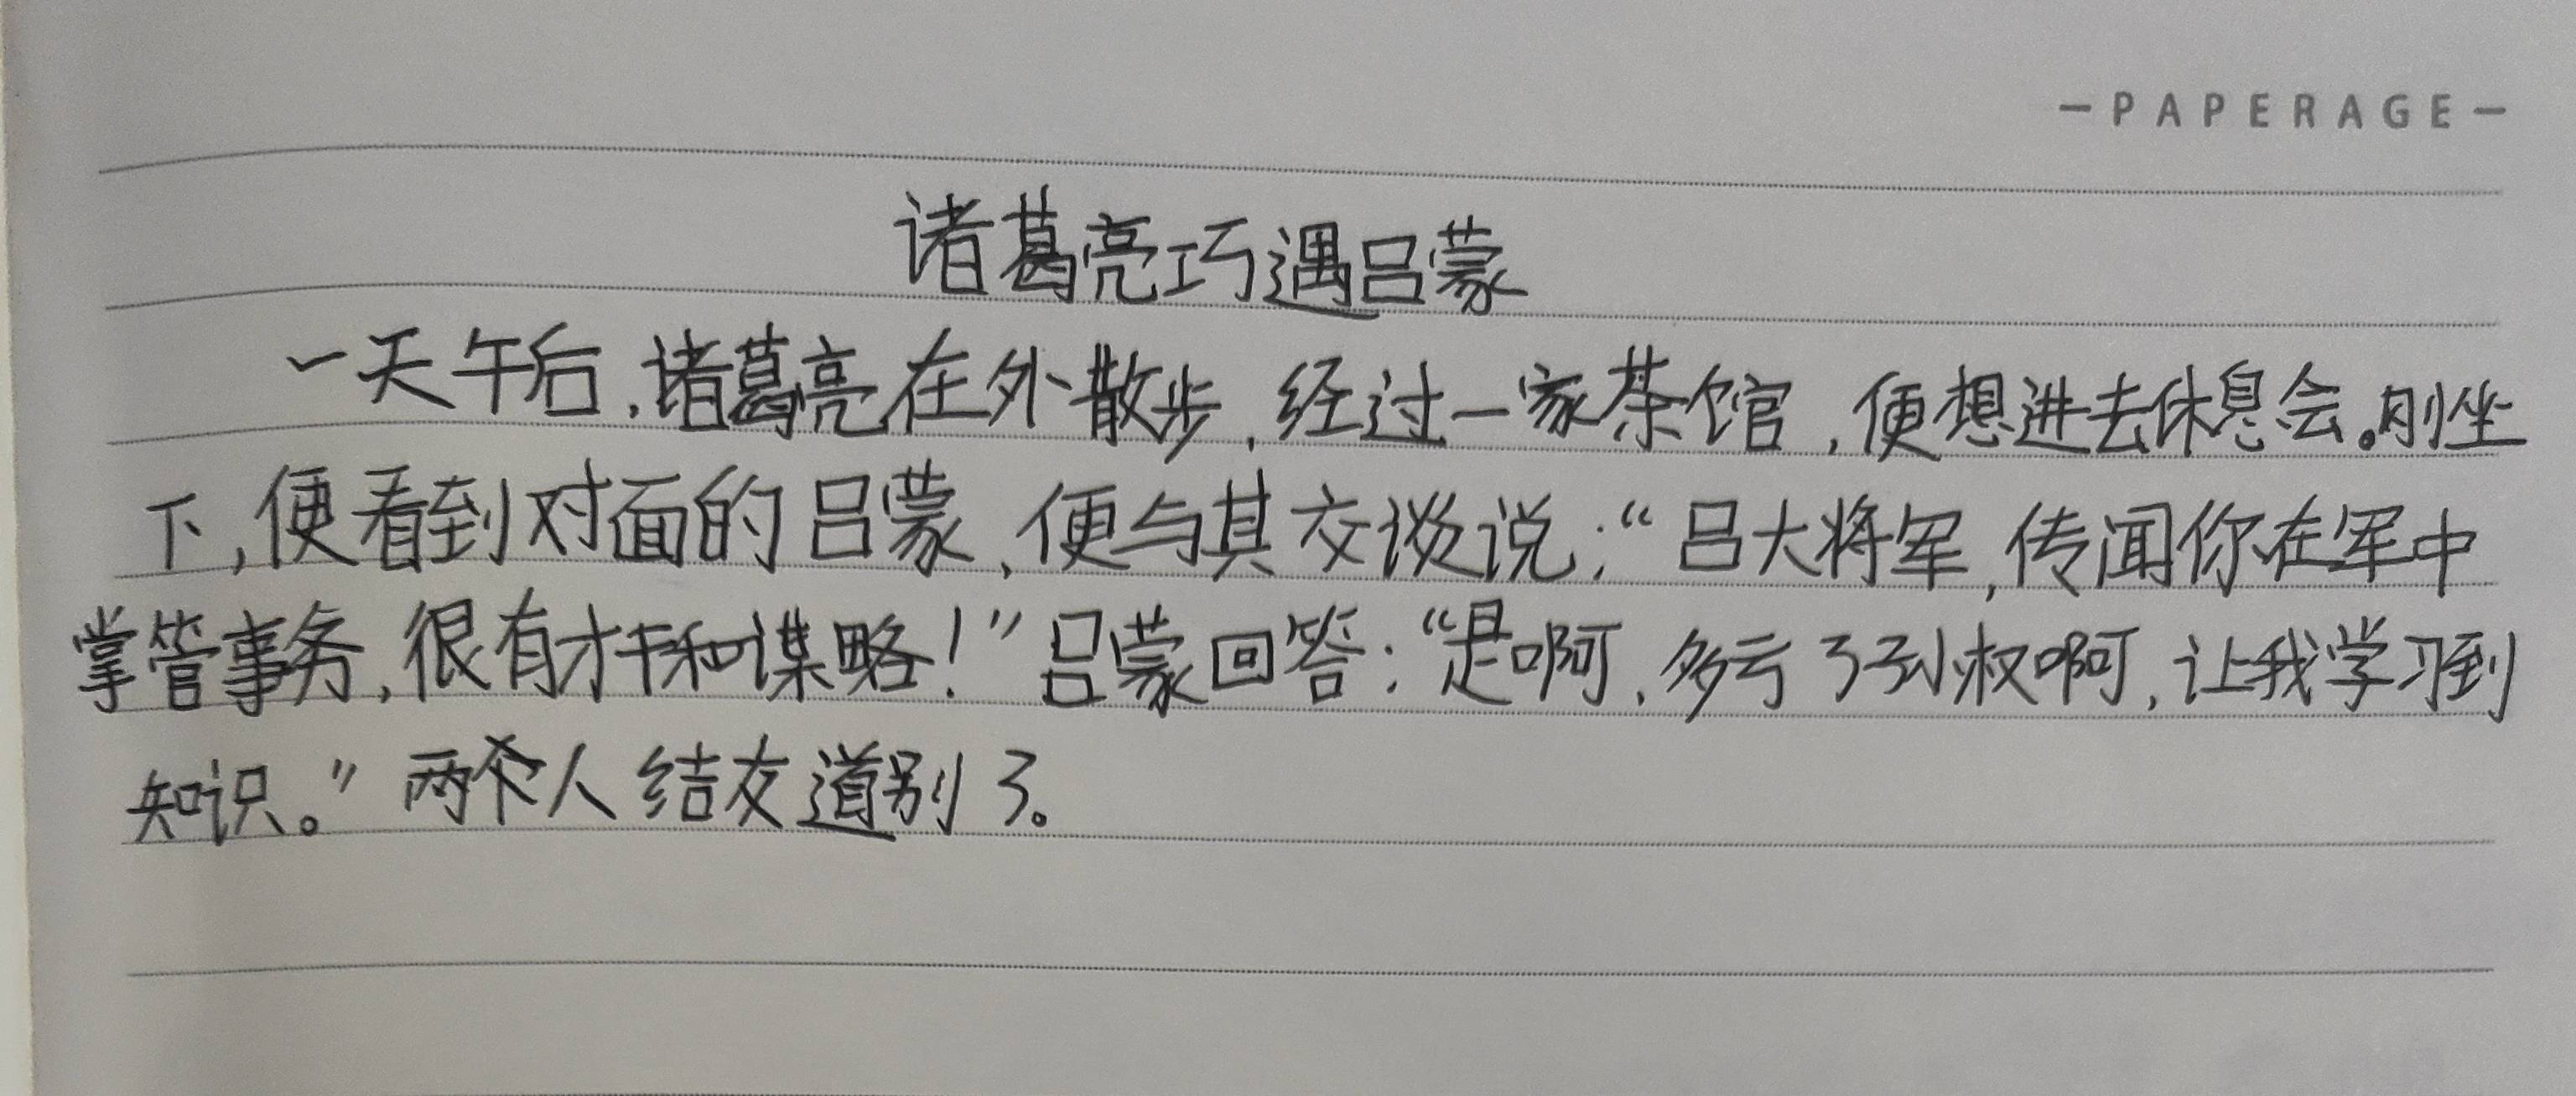 —PAPERAGE—
诸葛亮巧遇吕蒙
一天午后,诸葛亮在外散步,经过一家茶馆,便想进去休息会。刚坐
下,便看到对面的吕蒙,便与其交谈说:“吕大将军,传闻你在军中
掌管事务,很有才干和谋略!”吕蒙回答:“是啊,多亏了孙权啊,让我学习到
知识。”两个人结友道别了。